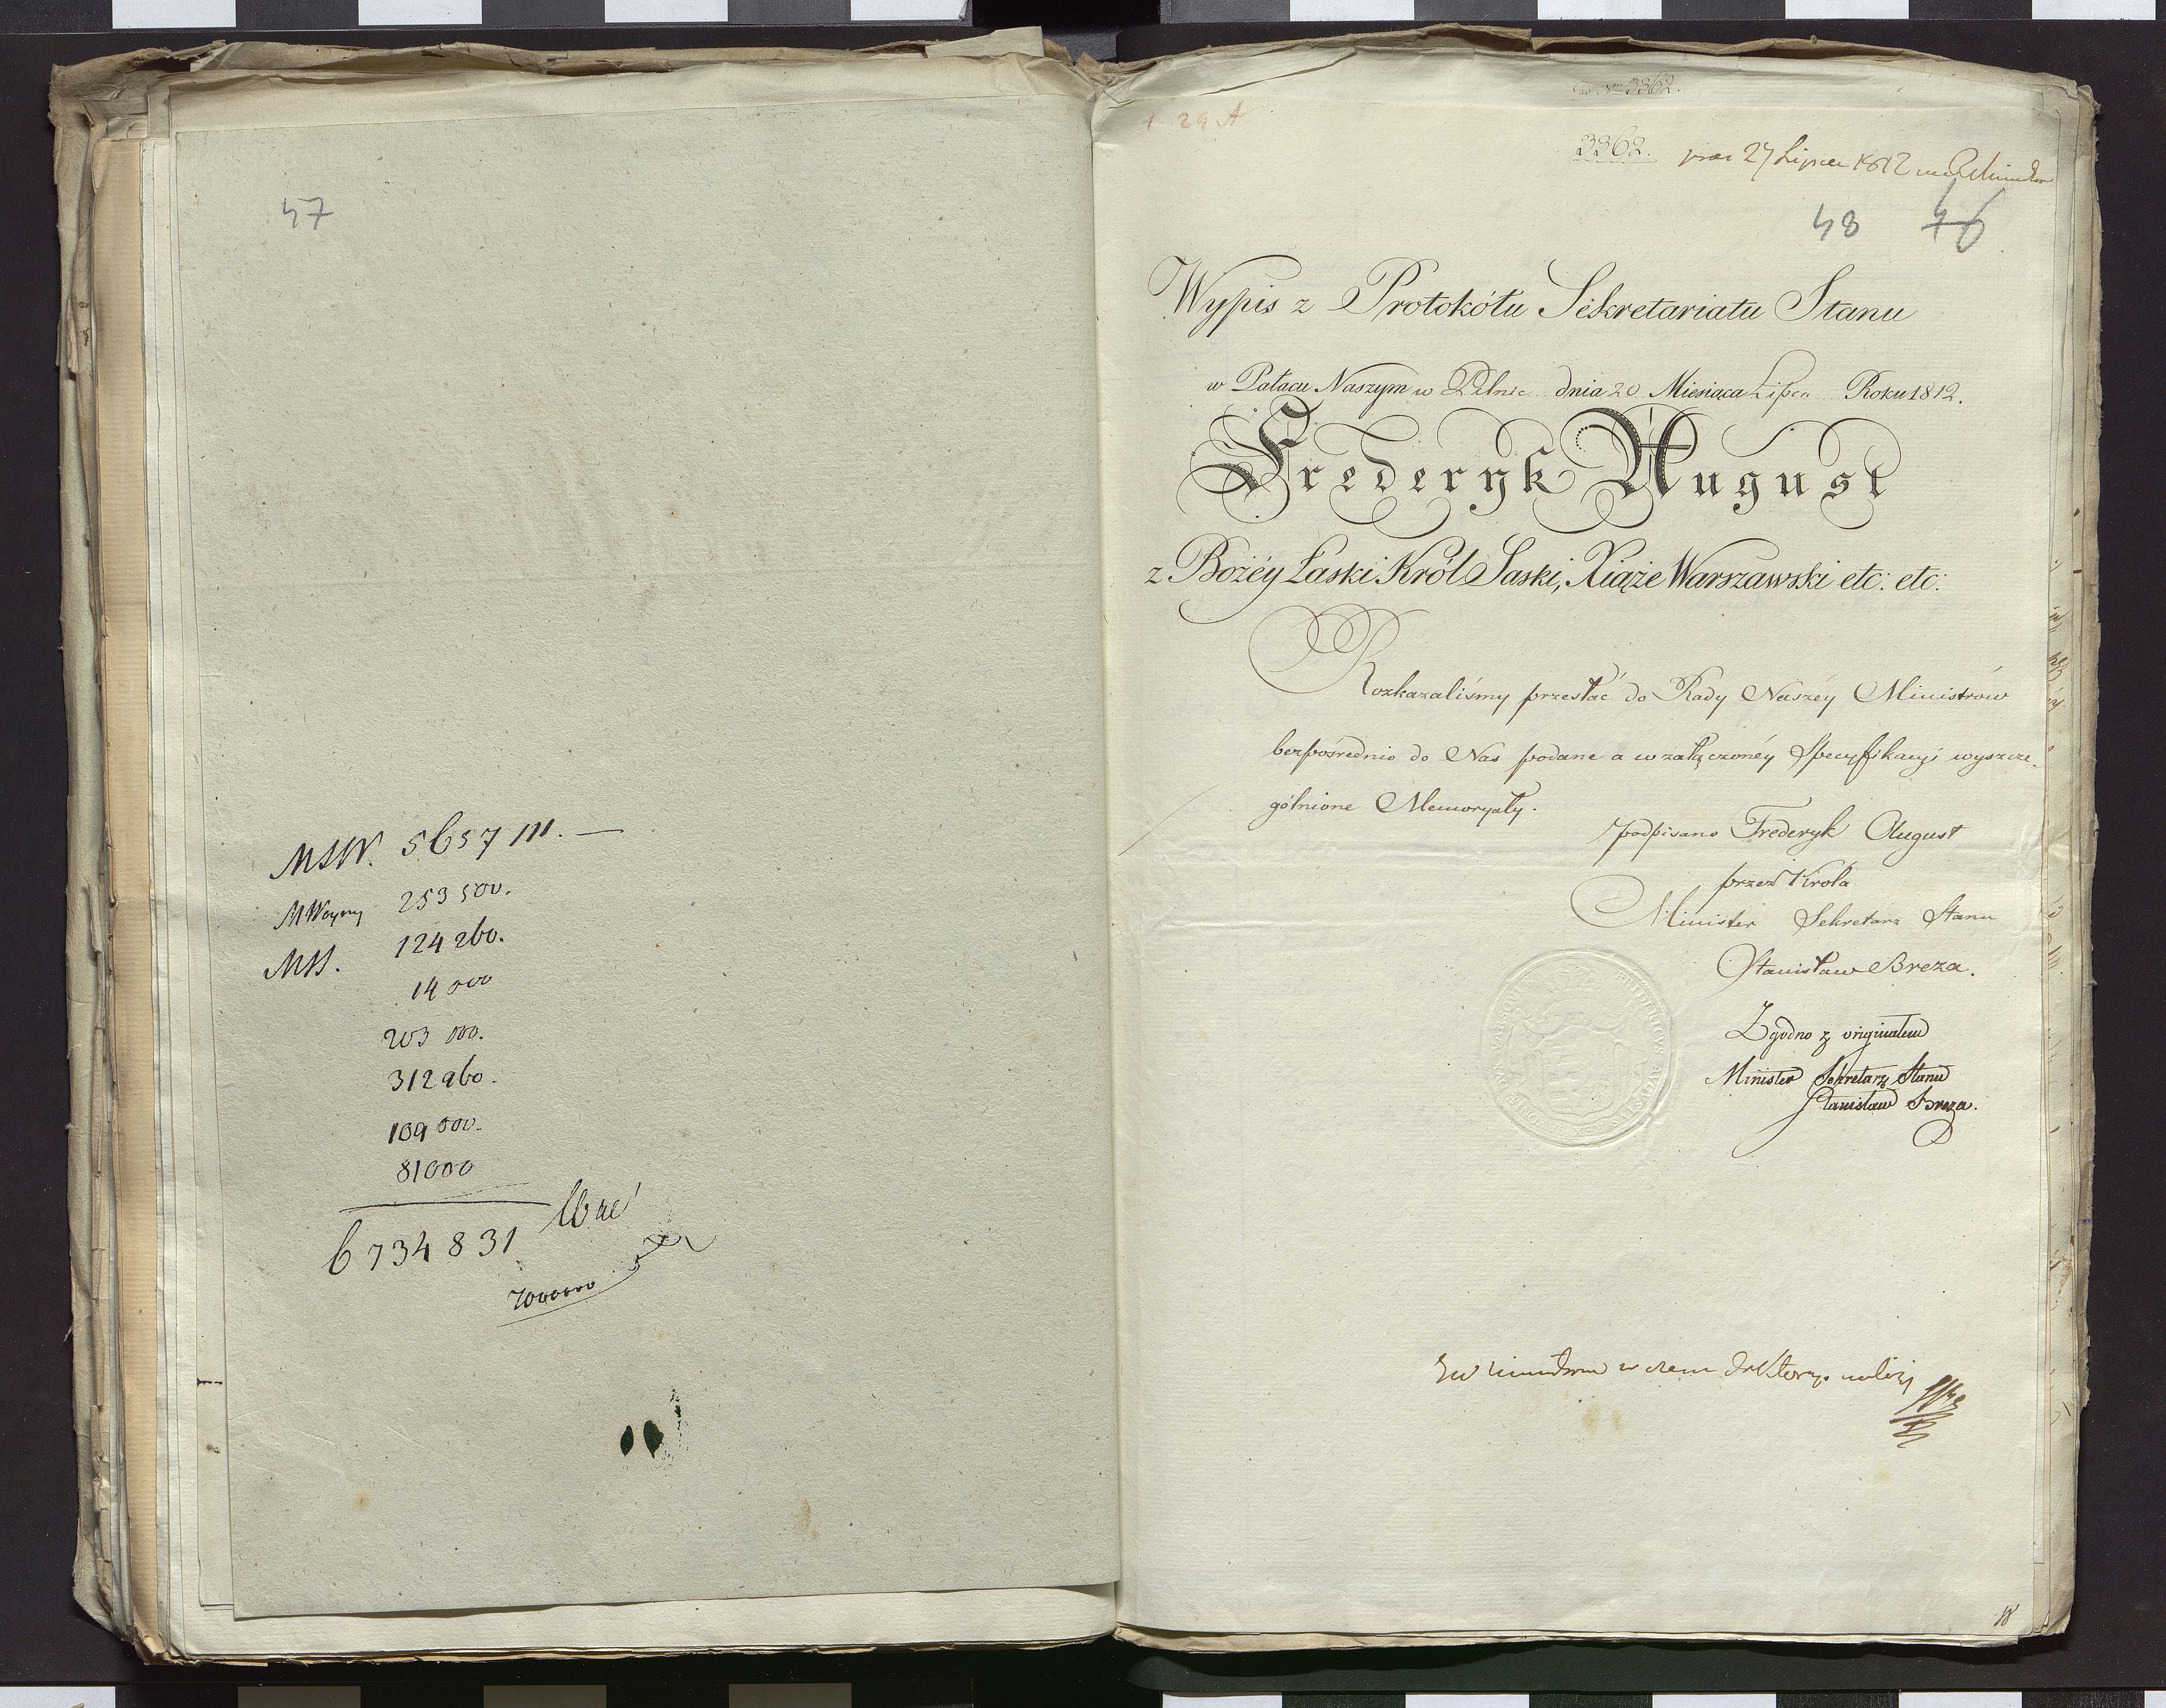 47
MSW. 5657 111. —
MWoyny 253 500.
MS. 124 260.
14 000
203 000.
312 960.
109 000.
81000
6 734 831
7000000
29 A
ad Nrm 3362.
3362. 27 Lipca 1812
48 46
Wypis z Protokółu Sekretariatu Stanu
w Pałacu Naszym w Pilnic dnia 20 Miesiąca Lipca Roku 1812.
Frederyk August
z Bożéy Łaski Król Saski, Xiąże Warszawski etc: etc:
Rozkazaliśmy przesłać do Rady Naszéy Ministrów
bezpośrednio do Nas podane a w załączonéy Specyfikacyi wyszcze-
gólnione Memoryały.
podpisano Frederyk August
przez Króla
Minister Sekretarz Stanu
Stanisław Breza.
Zgodno z originałem
Minister Sekretarz Stanu
Stanisław Breza.
należy
18